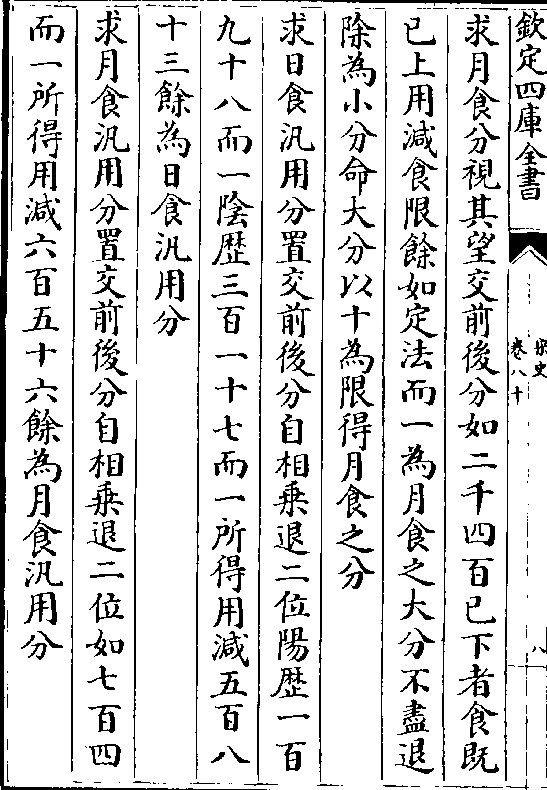 欽定四庫全書
宋史
卷八十
八
求月食分視其望交前後分如二千四百已下者食既
已上用減食限餘如定法而一為月食之大分不盡退
除為小分命大分以十為限得月食之分
求日食汎用分置交前後分自相乗退二位陽歴一百
九十八而一陰歴三百一十七而一所得用減五百八
十三餘為日食汎用分
求月食汎用分置交前後分自相乗退二位如七百四
而一所得用減六百五十六餘為月食汎用分